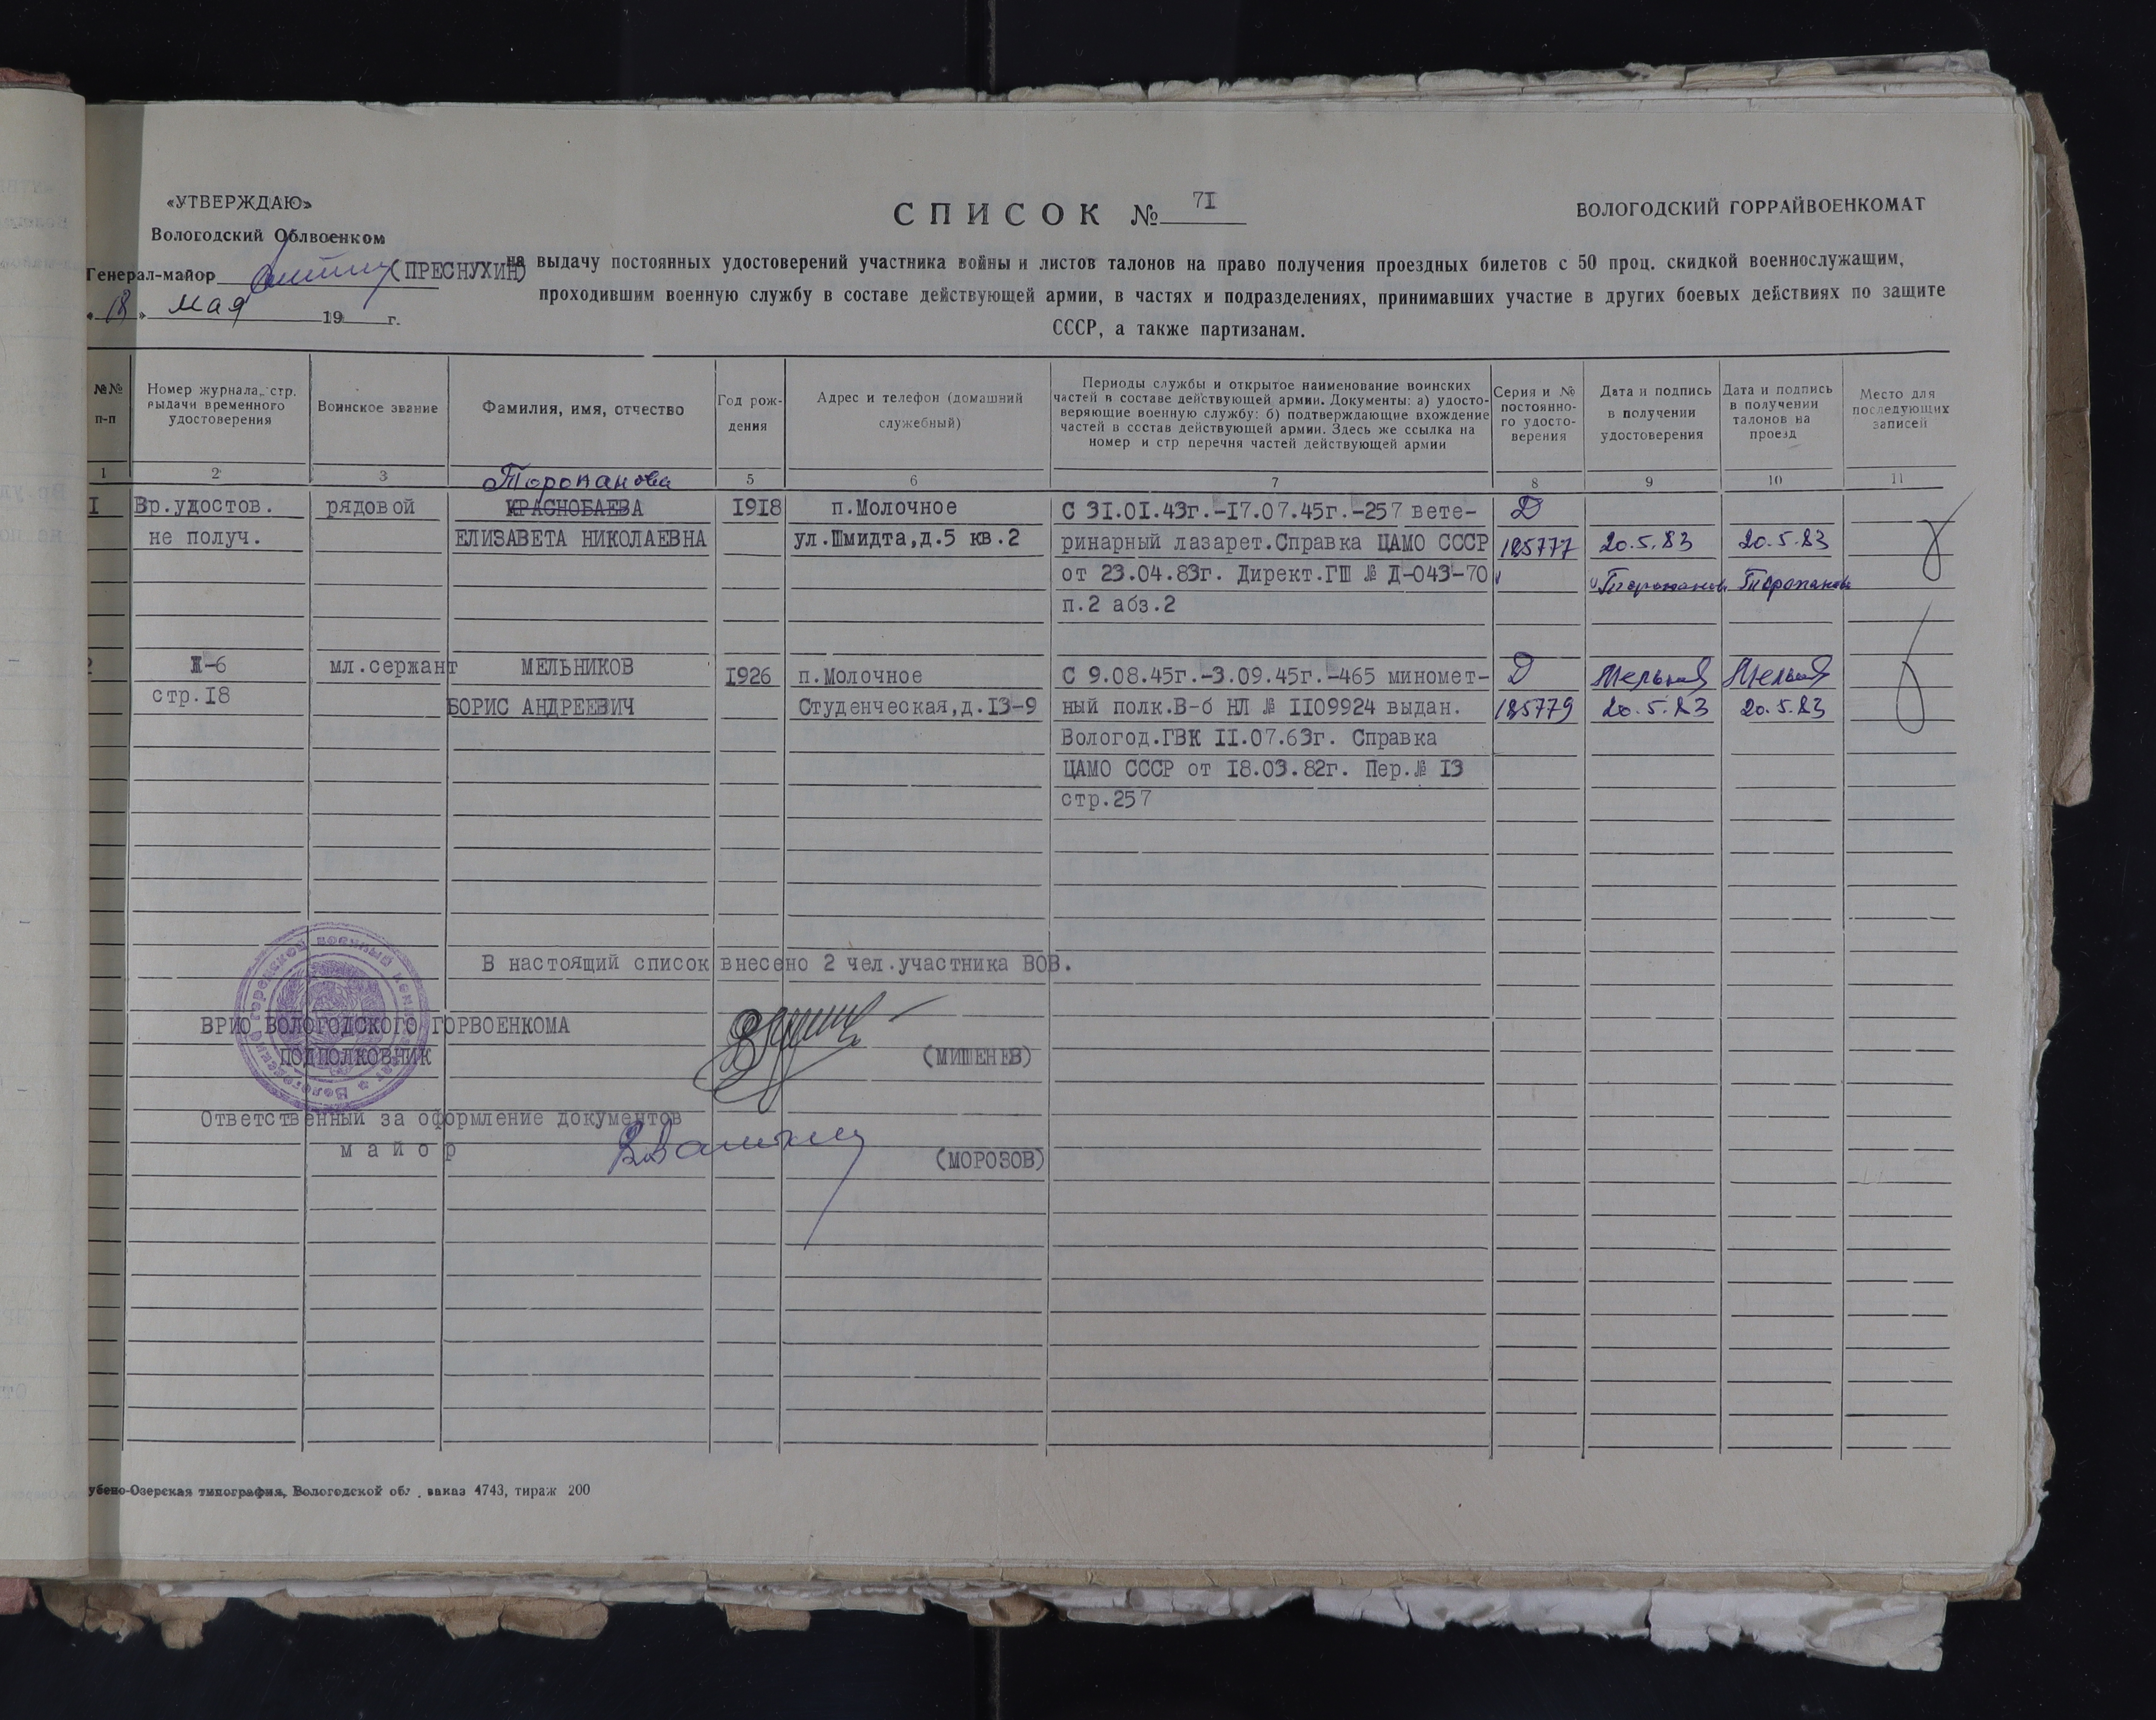 «УТВЕРЖДАЮ»
Вологодский Облвоенком
Генерал-майор (ПРЕСНУХИН)
«18» мая 19 г.
СПИСОК № 7I
ВОЛОГОДСКИЙ ГОРРАЙВОЕНКОМАТ
на выдачу постоянных удостоверений участника войны и листов талонов на право получения проездных билетов с 50 проц. скидкой военнослужащим,
проходившим военную службу в составе действующей армии, в частях и подразделениях, принимавших участие в других боевых действиях по защите
СССР, а также партизанам.
№№
п-п
Номер журнала, стр.
выдачи временного
удостоверения
Воинское звание
Фамилия, имя, отчество
Год рож-
дения
Адрес и телефон (домашний
служебный)
Периоды службы и открытое наименование воинских
частей в составе действующей армии. Документы: а) удосто-
веряющие военную службу: б) подтверждающие вхождение
частей в состав действующей армии. Здесь же ссылка на
номер и стр перечня частей действующей армии
Серия и №
постоянно-
го удосто-
верения
Дата и подпись
в получении
удостоверения
Дата и подпись
в получении
талонов на
проезд
Место для
последующих
записей
1 2 3 5 6 7 8 9 10 11
Торопанова
I Вр.удостов. рядовой КРАСНОБАЕВА 1918 п.Молочное С 3I.0I.43г.-I7.07.45г.-257 вете- Д
не получ. ЕЛИЗАВЕТА НИКОЛАЕВНА ул.Шмидта,д.5 кв.2 ринарный лазарет.Справка ЦАМО СССР 185777 20.5.83 20.5.83
от 23.04.83г. Директ.ГШ № Д-043-70 Торопанова Торопанова
п.2 абз.2
2 Ж-6 мл.сержант МЕЛЬНИКОВ I926 п.Молочное С 9.08.45г.-3.09.45г.-465 миномет- Д Мельник Мельник
стр.I8 БОРИС АНДРЕЕВИЧ Студенческая,д.I3-9 ный полк.В-б НЛ № II09924 выдан. 185779 20.5.83 20.5.83
Вологод.ГВК II.07.63г. Справка
ЦАМО СССР от I8.03.82г. Пер.№ I3
стр.257
В настоящий список внесено 2 чел.участника ВОВ.
ВРИО ВОЛОГОДСКОГО ГОРВОЕНКОМА
ПОДПОЛКОВНИК (МИШЕНЕВ)
Ответственный за оформление документов
майор (МОРОЗОВ)
убено-Озерская типография, Вологодской обл. заказ 4743, тираж 200